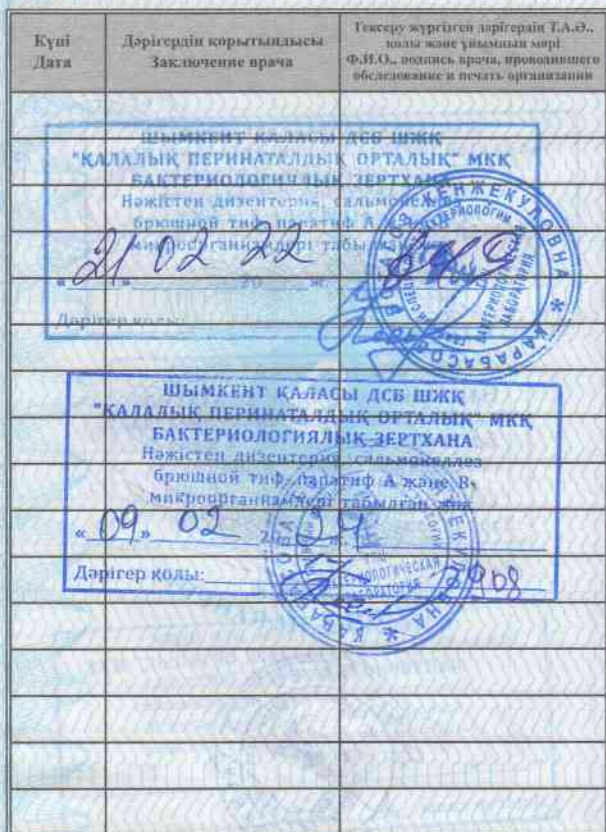 Күні
Дата
Дәрігердің қорытындысы
Заключение врача
Тексеру жүргізген дәрігердің Т.А.Ә.,
қолы және ұйымның мөрі
Ф.И.О., подпись врача, проводившего
обследование и печать организации
ШЫМКЕНТ ҚАЛАСЫ ДСБ ШЖҚ
"ҚАЛАЛЫҚ ПЕРИНАТАЛДЫҚ ОРТАЛЫҚ" МКҚ
БАКТЕРИОЛОГИЯЛЫҚ ЗЕРТХАНА
Нәжістен дизентерия, сальмонеллез
брюшной тиф, паратиф А
микроорганизмдері табылған
« 21 » 02 20 22 ж.
Дәрігер қолы:
ЖЕНЖЕКУЛОВНА * КАРАБАСОВА
БАКТЕРИОЛОГИЧЕСКАЯ
ЛАБОРАТОРИЯ
ШЫМКЕНТ ҚАЛАСЫ ДСБ ШЖҚ
"ҚАЛАЛЫҚ ПЕРИНАТАЛДЫҚ ОРТАЛЫҚ" МКҚ
БАКТЕРИОЛОГИЯЛЫҚ ЗЕРТХАНА
Нәжістен дизентерия, сальмонеллез
брюшной тиф, паратиф А және В
микроорганизмдері табылған жоқ
« 09 » 02 24
Дәрігер қолы: 3908